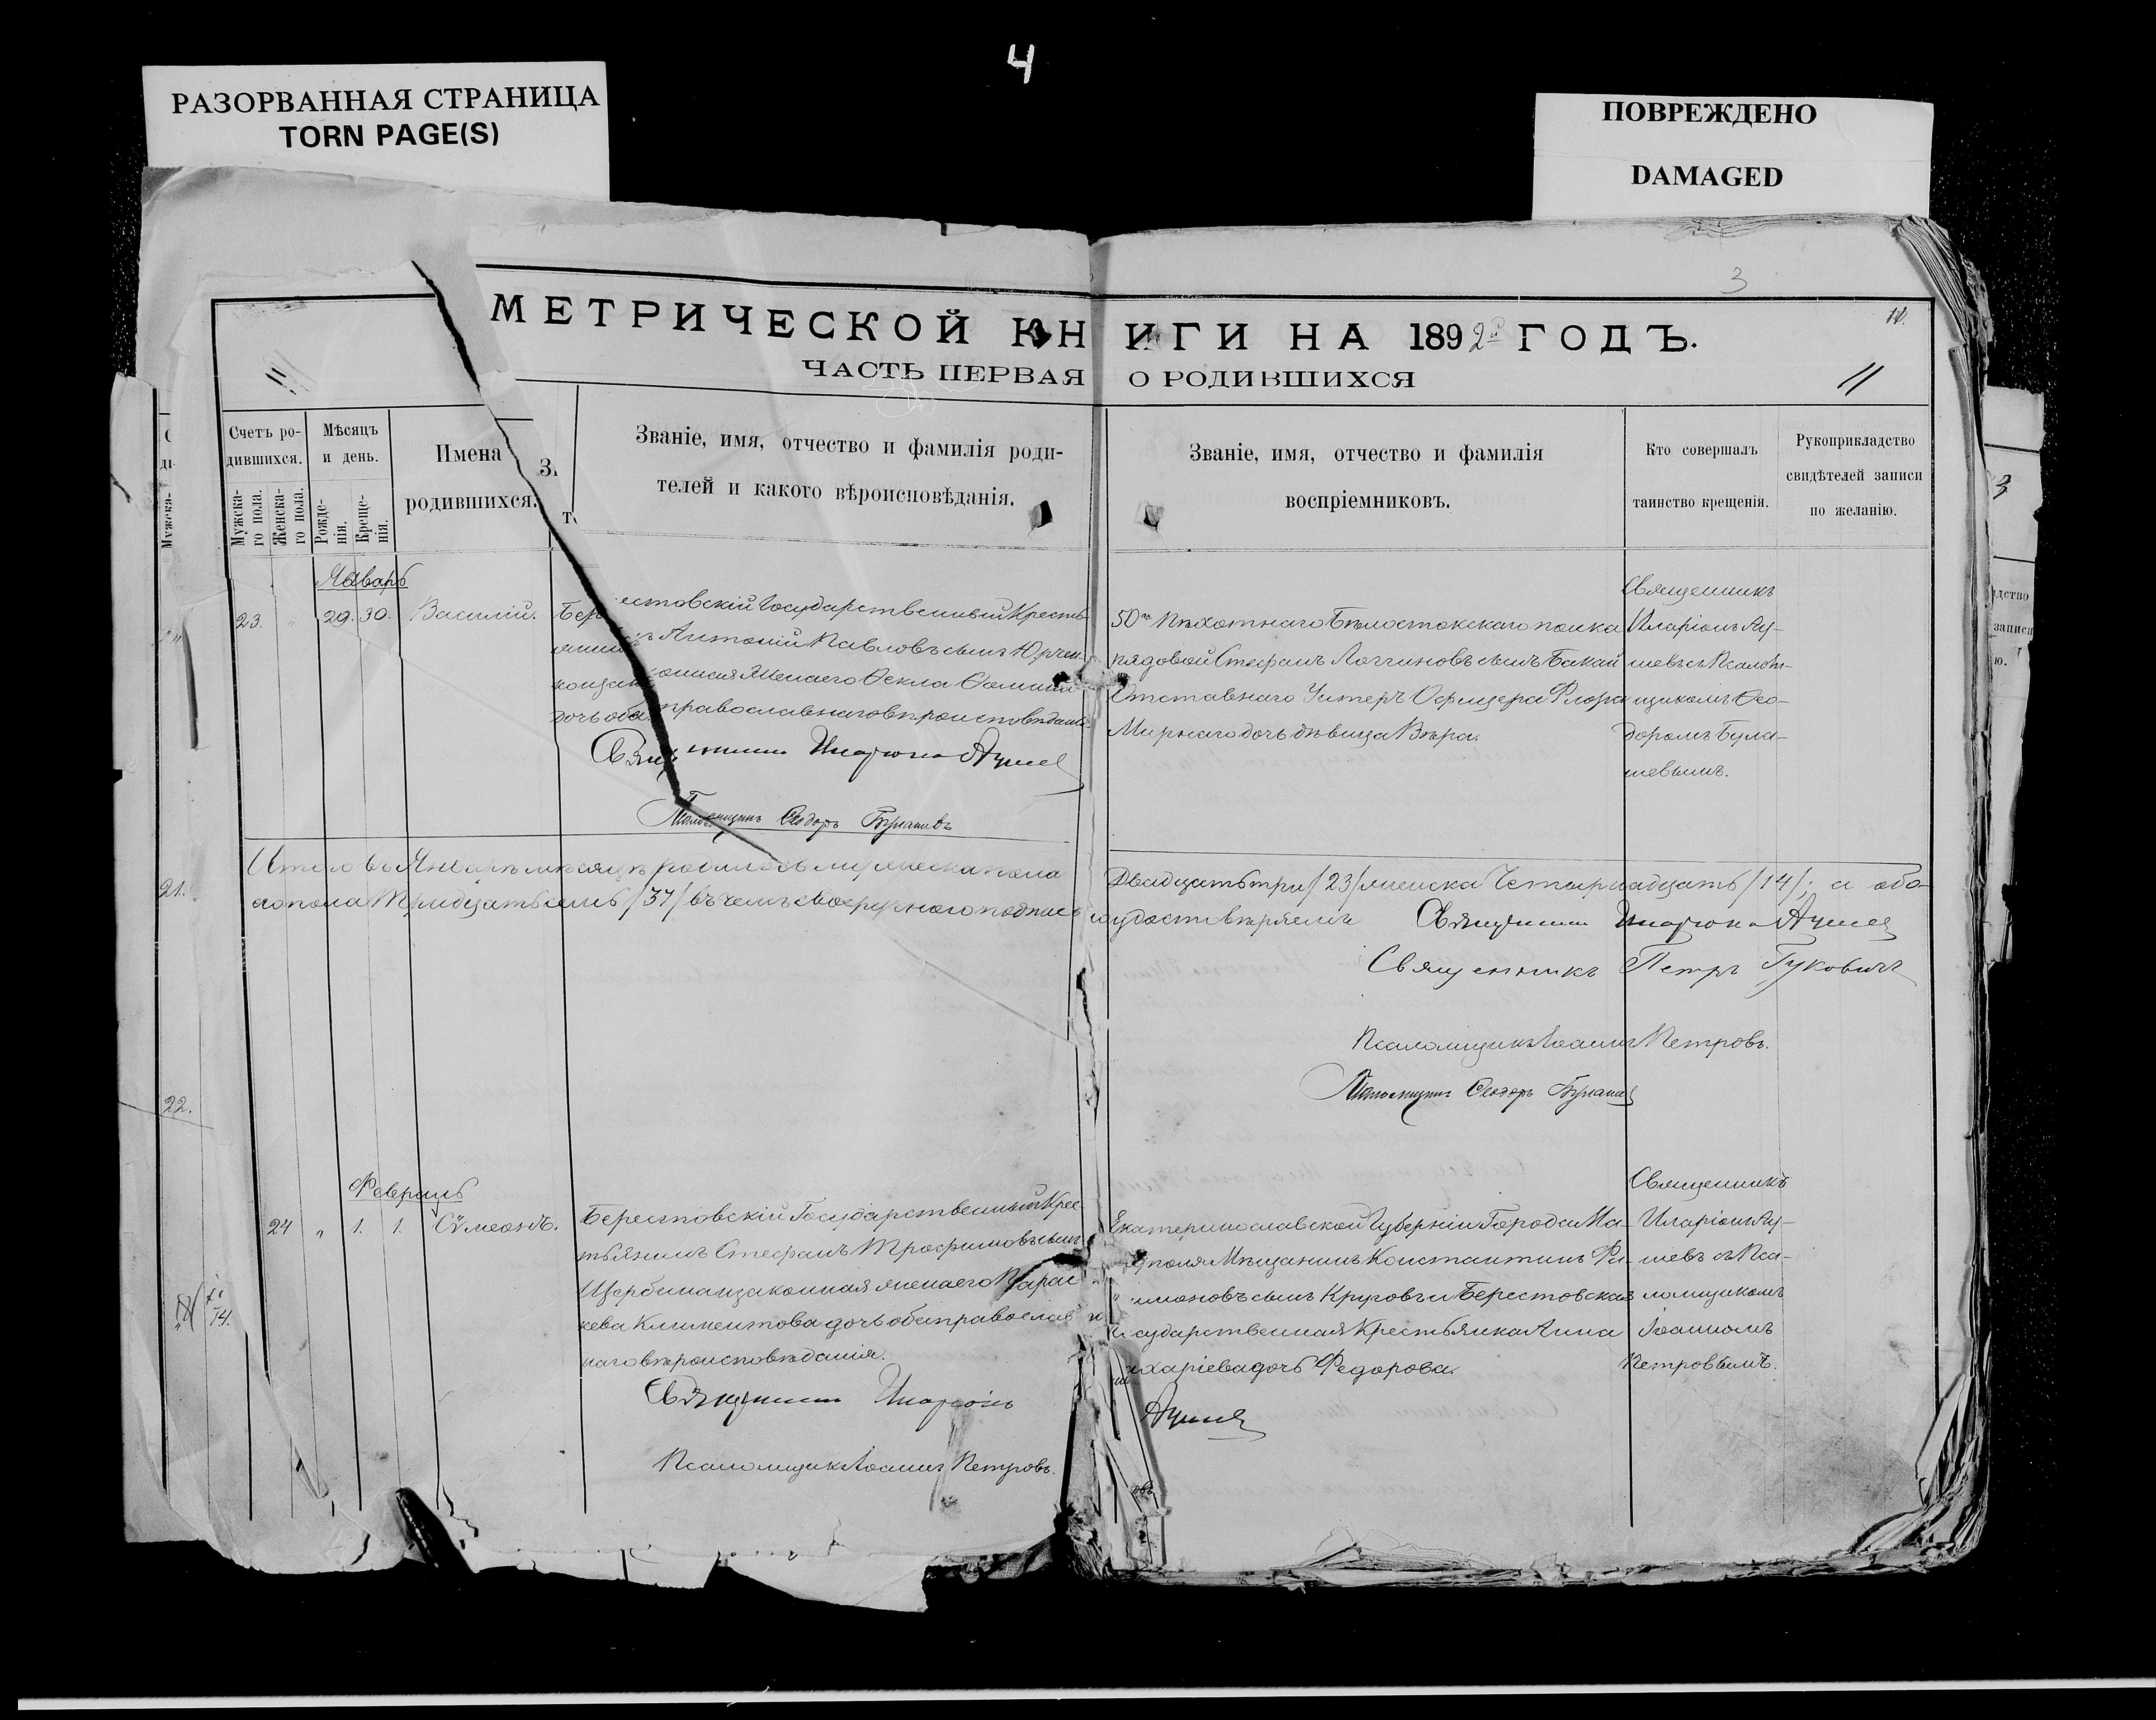 4
РАЗОРВАННАЯ СТРАНИЦА
TORN PAGE(S)
ПОВРЕЖДЕНО
DAMAGED
3
МЕТРИЧЕСКОЙ КНИГИ НА 1892й ГОДЪ.
ЧАСТЬ ПЕРВАЯ О РОДИВШИХСЯ
11
11
Счетъ ро-
дившихся.
Мужска-
го пола.
Женска-
го пола.
Мѣсяцъ
и день.
Рожде-
нія.
Креще-
нія.
Имена
родившихся.
Званіе, имя, отчество и фамилія роди-
телей и какого вѣроисповѣданія.
Званіе, имя, отчество и фамилія
воспріемниковъ.
Кто совершалъ
таинство крещенія.
Рукоприкладство
свидѣтелей записи
по желанію.
Январь
23. " 29. 30. Василій.
Берестовскій Государственный Кресть-
янинъ Антоній Павловъ сынъ Юрчен-
законная жена его Ѳекла
дочь оба православнаго вѣроисповѣданія.
Священникъ Иларіонъ
Псаломщикъ Ѳеодоръ
50го Пѣхотнаго Бѣлостокскаго полка
рядовой Стефанъ Логгиновъ сынъ Бакай
Отставнаго Унтеръ Офицера
Мирнаго дочь дѣвица Вѣра.
Священникъ
Иларіонъ Ау-
шевъ съ Псалом-
щикомъ Ѳео-
доромъ Була-
шевымъ.
Итого въ Январѣ мѣсяцѣ родилось мужеска пола
Двадцать три /23/ женска Четырнадцать /14/; а обо-
его пола Тридцать семь /37/ въ чемъ
удостовѣряемъ Священникъ Иларіонъ
Священникъ Петръ Гуковичъ
Псаломщикъ Іоаннъ Петровъ.
Псаломщикъ Ѳеодоръ
Февраль
24 " 1. 1. Сѵмеонъ.
Берестовскій Государственный Крес-
тьянинъ Стефанъ Трофимовъ сынъ
Щербина и законная жена его Парас-
кева Климентова дочь оба православ-
наго вѣроисповѣданія.
Священникъ Иларіонъ
Псаломщикъ Іоаннъ Петровъ.
Екатеринославской Губерніи Города Ма-
поля Мѣщанинъ Константинъ Фи-
имоновъ сынъ Круговъ и Берестовская
сударственная Крестьянка Анна
харіева дочь Федорова.
Священникъ
Иларіонъ Ау-
шевъ съ Пса-
ломщикомъ
Іоанномъ
Петровымъ.
21.
22.